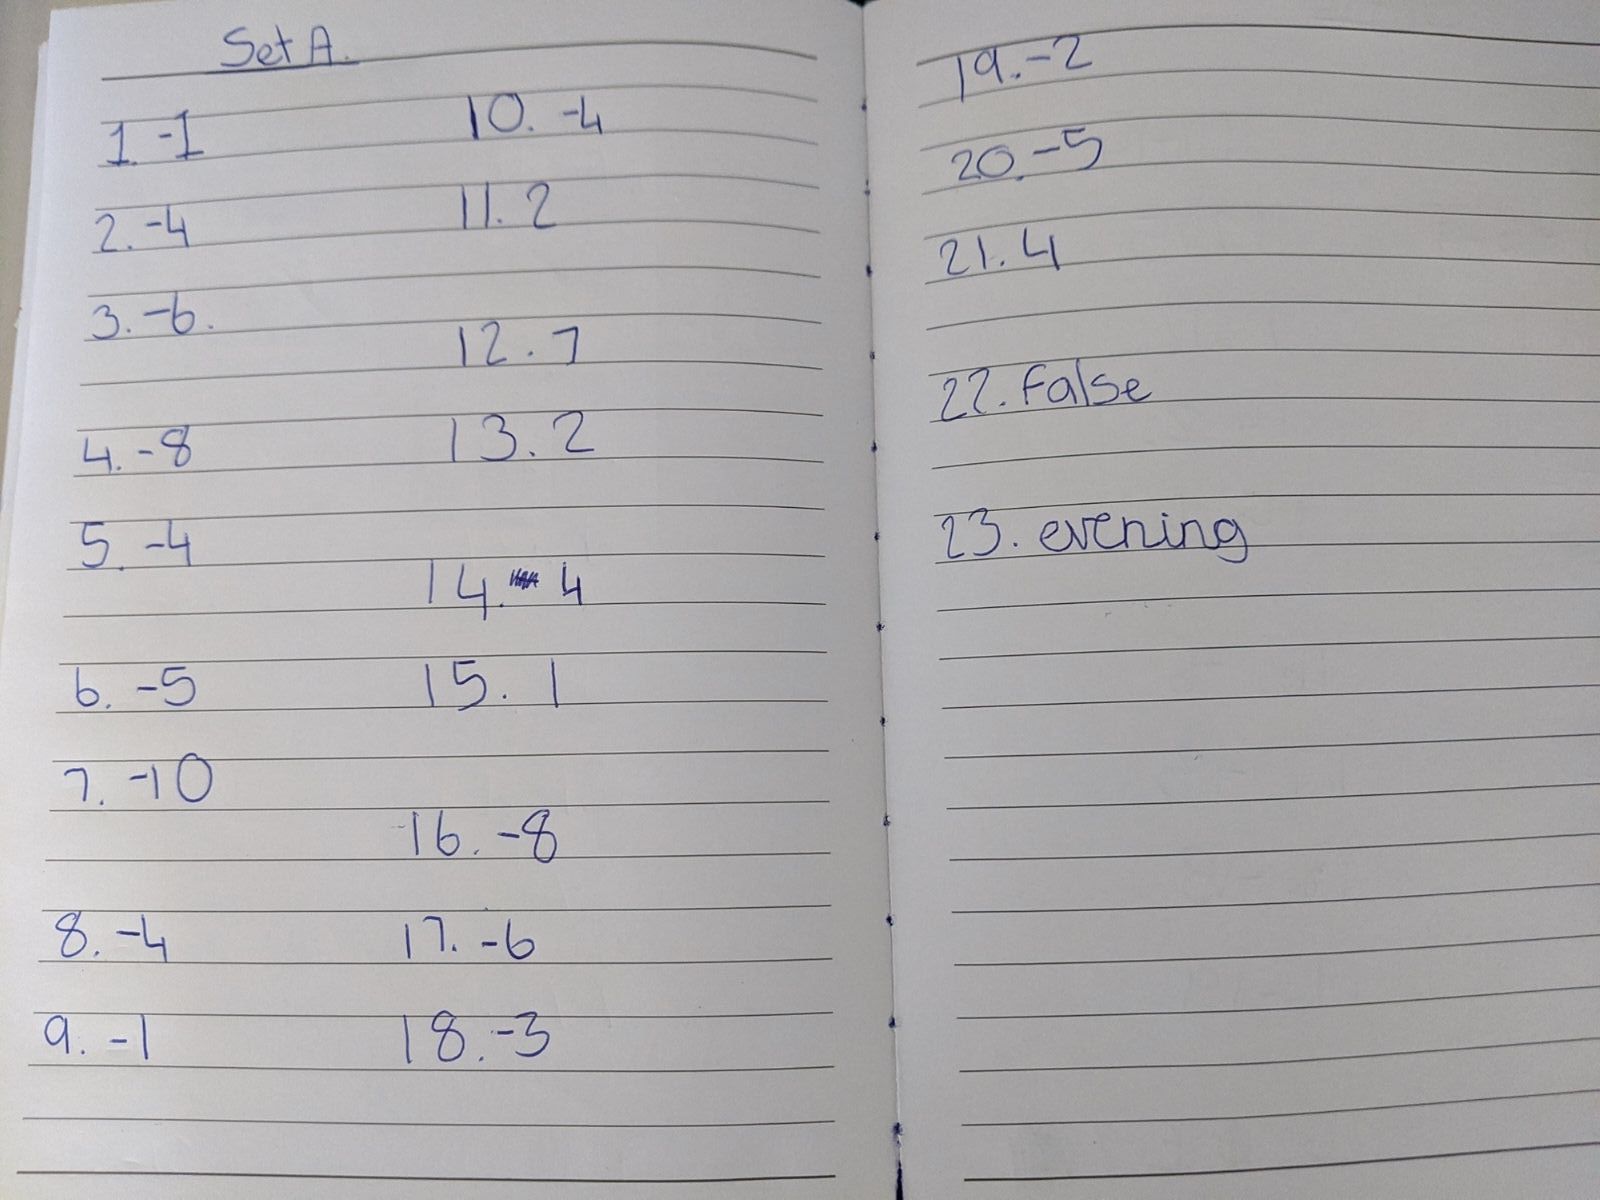 Set A.
1. -1
2. -4
3. -6.
4. -8
5. -4
6. -5
7. -10
8. -4
9. -1
10. -4
11. 2
12. 7
13. 2
14. 4
15. 1
16. -8
17. -6
18. -3
19. -2
20. -5
21. 4
22. False
23. evening